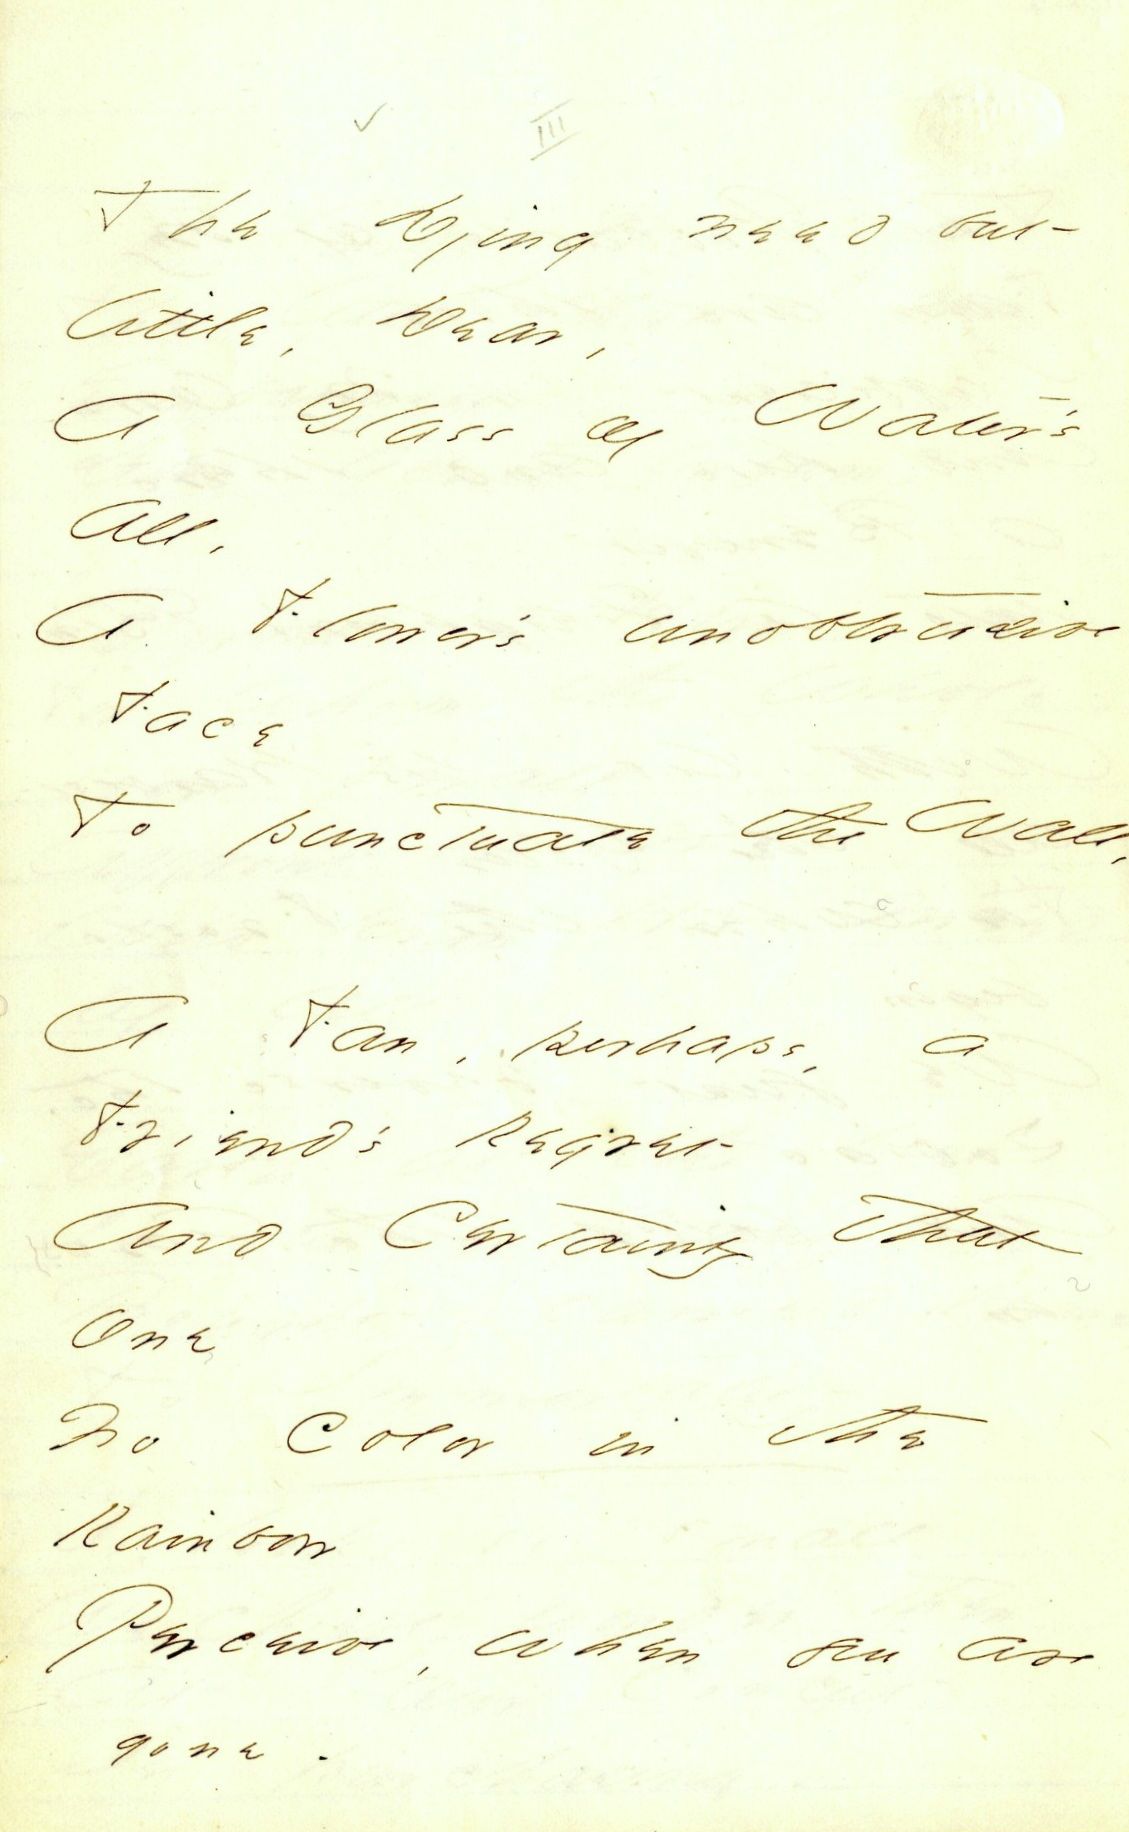 III
The Dying need but
little, Dear,
A Glass of Water's
all,
A Flower's unobtrusive
Face
To punctuate the Wall,
A Fan, perhaps, a
Friend's Regret
And Certainty that
one
No Color in the
Rainbow
Perceive, when you are
gone.